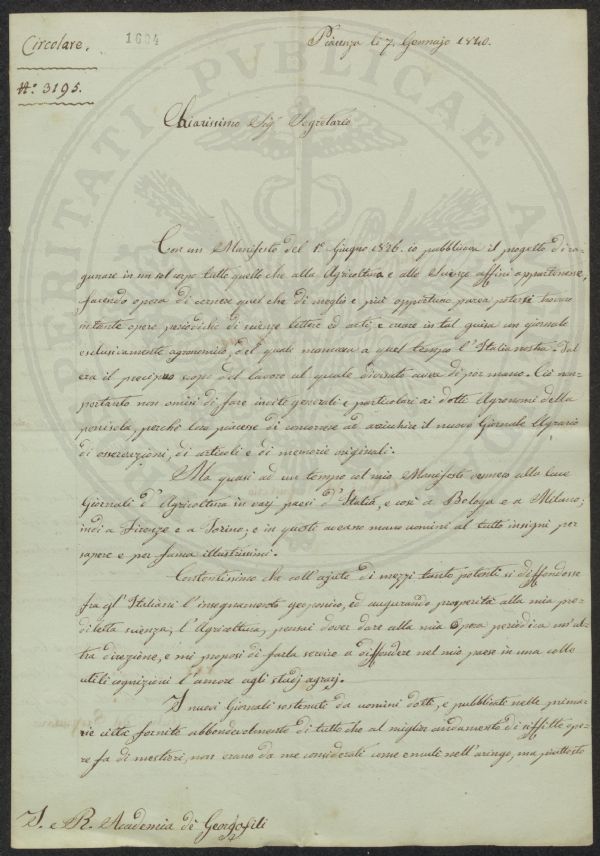 Circolare.
1684
Piacenza li 7. Gennajo 1840.
N.° 3195.
Chiarissimo Sig.r Segretario
Con un Manifesto del 1.° Giugno 1826. io pubblicava il progetto di ra-
gunare in un sol corpo tutto quello che alla Agricoltura e alle Scienze affini appartenesse,
facendo opera di cernere quel che di meglio e più opportuno parea potersi trovare
in tante opere periodiche di scienze lettere ed arti, e creare in tal guisa un giornale
esclusivamente agronomico, del quale mancava a quel tempo l'Italia nostra. Tal
era il precipuo scopo del lavoro al quale divisato avea di por mano. Ciò non
portanto non omisi di fare inviti generali e particolari ai dotti Agronomi della
penisola, perchè loro piacesse di concorrere ad arricchire il nuovo Giornale Agrario
di osservazioni, di articoli e di memorie originali.
Ma quasi ad un tempo col mio Manifesto vennero alla luce
Giornali d'Agricoltura in varj paesi d'Italia, e così a Bologa e a Milano;
indi a Firenze e a Torino; e in questi aveano mano uomini al tutto insigni per
sapere e per fama illustrissimi.
Contentissimo che coll'ajuto di mezzi tanto potenti si diffondesse
fra gl'Italiani l'insegnamento geoponico, ed augurando prosperità alla mia pre-
diletta scienza, l'Agricoltura, pensai dover dare alla mia Opera periodica un'al-
tra direzione, e mi proposi di farla servire a diffondere nel mio paese in una colle
utili cognizioni l'amore agli studj agrarj.
I nuovi Giornali sostenuti da uomini dotti, e pubblicati nelle prima-
rie città fornite abbondevolmente di tutto che al miglior andamento di siffatte ope-
re fa di mestieri, non erano da me considerati come emuli nell'aringo, ma piuttosto
I. e R. Accademia de' Georgofili